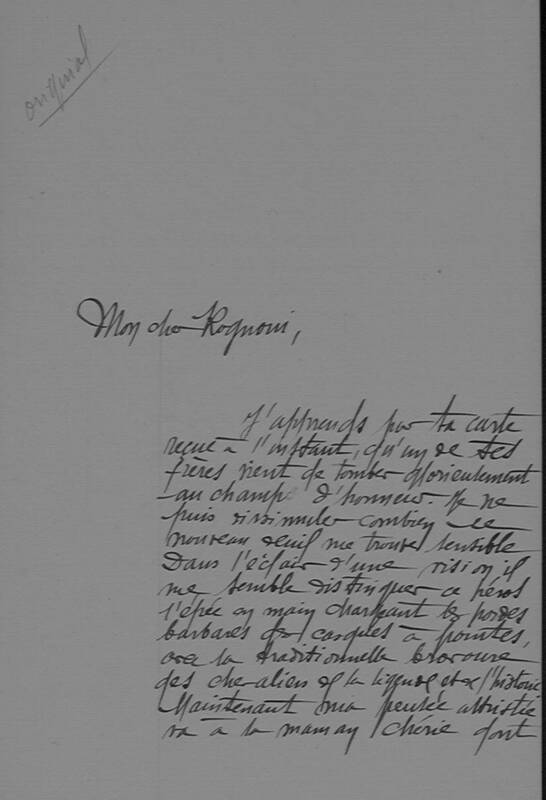 original
Mon cher Rognoni,
J'apprends par ta carte
reçue à l'instant, qu'un de tes
frères vient de tomber glorieusement
au champ d'honneur. Je ne
puis dissimuler combien ce
nouveau deuil me trouve sensible
Dans l'éclair d'une vision il
me semble distinguer ce héros
l'épée en main chargeant les hordes
barbares des casques à pointes,
avec la traditionnelle bravoure
des chevaliers de la légende et de l'histoire
Maintenant ma pensée attristée
va à la maman chérie dont